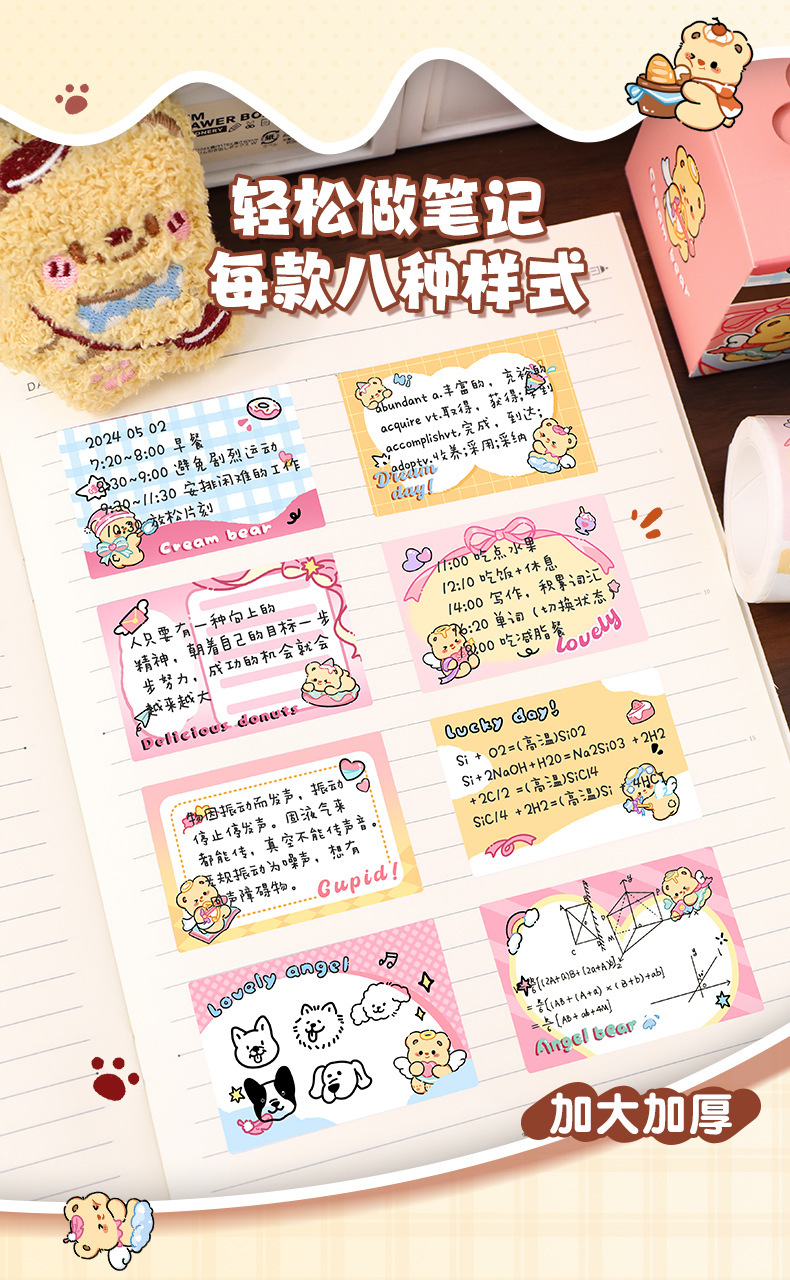 AWER BO
轻松做笔记
每款八种样式
Cream bear
2024 05 02
7:20~8:00 早餐
8:30~9:00 避免剧烈运动
9:30~11:30 安排困难的工作
放松片刻
Cream bear
Hi
abundant a.丰富的，充裕的
acquire vt.取得，获得;学到
accomplishvt.完成，到达;
adoptv.收养;采用;采纳
Dream
day!
人只要有一种向上的
精神，朝着自己的目标一步
步努力，成功的机会就会
越来越大
Delicious donuts
11:00 吃点水果
12:10 吃饭+休息
14:00 写作，积累词汇
16:20 单词（切换状态）
18:00 吃减脂餐
lovely
物因振动而发声，振动
停止停发声。固液气来
都能传，真空不能传声音。
无规振动为噪声，想有
声障碍物。
Cupid!
Lucky day!
Si + O2=(高温)SiO2
Si+2NaOH+H2O=Na2SiO3 +2H2
+2C/2 =(高温)SiCl4
SiC/4 +2H2=(高温)Si +4HCl
Lovely angel
=[(2A+a)B+(2a+A)]
=[(AB+(A+a)×(B+b)+ab]
=[AB+ab+4M]
Angel bear
加大加厚